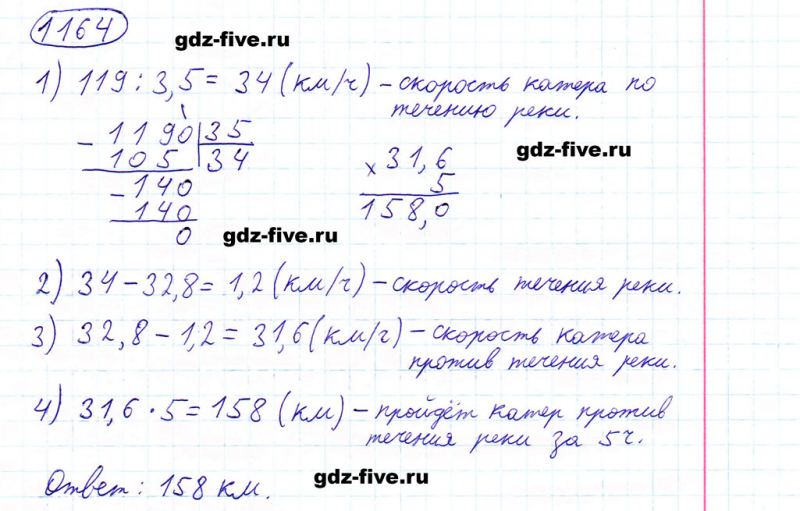 1164
gdz-five.ru
1) 119 : 3,5 = 34 (км/ч) – скорость катера по
течению реки.
– 1190 | 35
105 | 34
– 140
140
0
× 31,6
5
158,0
gdz-five.ru
gdz-five.ru
2) 34 – 32,8 = 1,2 (км/ч) – скорость течения реки.
3) 32,8 – 1,2 = 31,6 (км/г) – скорость катера
против течения реки.
4) 31,6 · 5 = 158 (км) – пройдёт катер против
течения реки за 5 ч.
Ответ: 158 км.
gdz-five.ru